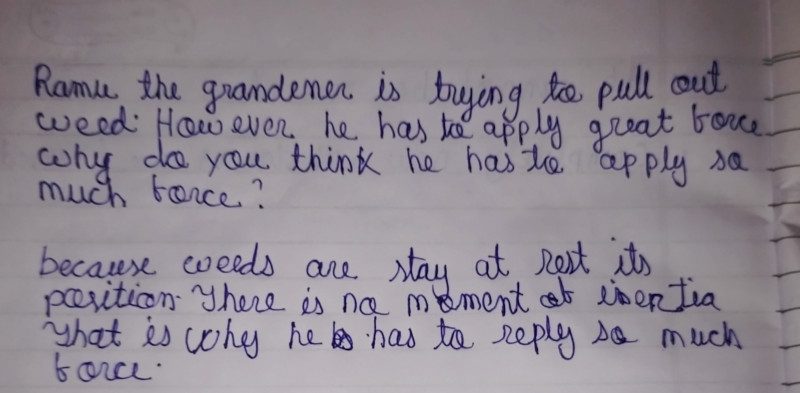 Ramu the grandener is trying to pull out
weed. However he has to apply great force
why do you think he has to apply so
much force?
because weeds are stay at rest its
position. There is no moment of inertia
That is why he has to reply so much
force.